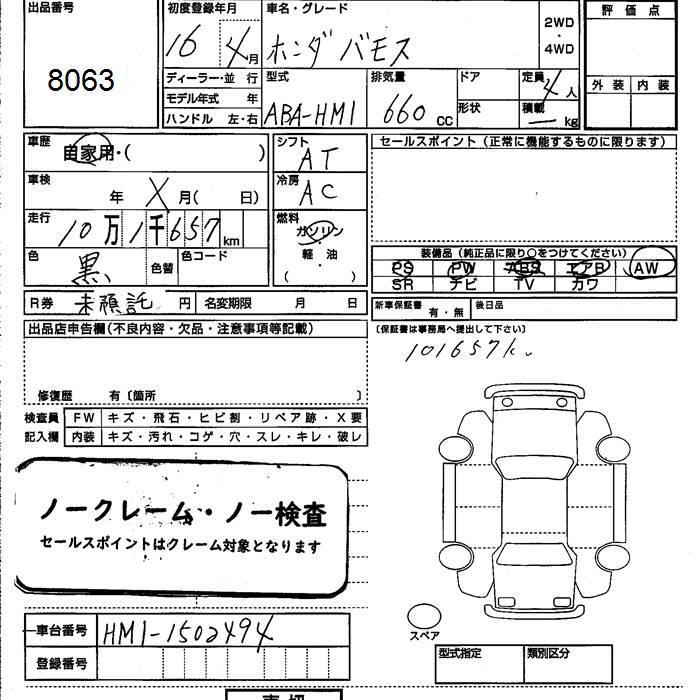 出品番号
8063
初度登録年月
16 4月
ディーラー・並 行
モデル年式 年
ハンドル 左・右
車名・グレード
ホンダ バモス
2WD
・
4WD
型式
ABA-HM1
排気量
660 cc
ドア
形状
定員 4人
積載 ー kg
評 価 点
外 装 内 装
車歴
自家用・( )
車検
年 X 月( 日)
走行
10万1千657 km
色
黒
色替
色コード
シフト
AT
冷房
AC
燃料
ガソリン
・
軽・油
( )
R券 未預託 円 名変期限 月 日
セールスポイント (正常に機能するものに限ります)
装備品 (純正品に限り○をつけてください)
PS PW ABS エアB AW
SR ナビ TV カワ
新車保証書
有・無
後日品
〔保証書は事務局へ提出して下さい〕
101657k
出品店申告欄(不良内容・欠品・注意事項等記載)
修復歴 有〔箇所 〕
検査員
記入欄
FW キズ・飛石・ヒビ割・リペア跡・X要
内装 キズ・汚れ・コゲ・穴・スレ・キレ・破レ
ノークレーム・ノー検査
セールスポイントはクレーム対象となります
車台番号 HM1-1502494
登録番号
スペア
型式指定
類別区分